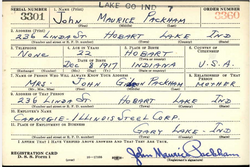 LAKE CO IND 7
SERIAL NUMBER 1. NAME (Print) ORDER NUMBER
3301 JOHN MAURICE PACKHAM 3360
2. ADDRESS (Print)
236 LINDA ST HOBART LAKE IND
3. TELEPHONE 4. AGE IN YEARS 5. PLACE OF BIRTH 6. COUNTRY OF CITIZENSHIP
NONE 22 HOBART
DATE OF BIRTH
DEC 8 1917 INDIANA U.S.A.
7. NAME OF PERSON WHO WILL ALWAYS KNOW YOUR ADDRESS 8. RELATIONSHIP OF THAT PERSON
MRS JOHN PACKHAM MOTHER
9. ADDRESS OF THAT PERSON
236 LINDA ST HOBART LAKE IND
10. EMPLOYER'S NAME
CARNEGIE-ILLINOIS STEEL CORP.
11. PLACE OF EMPLOYMENT OR BUSINESS
GARY LAKE IND
I AFFIRM THAT I HAVE VERIFIED ABOVE ANSWERS AND THAT THEY ARE TRUE.
REGISTRATION CARD
D. S. S. Form 1
John Maurice Packham